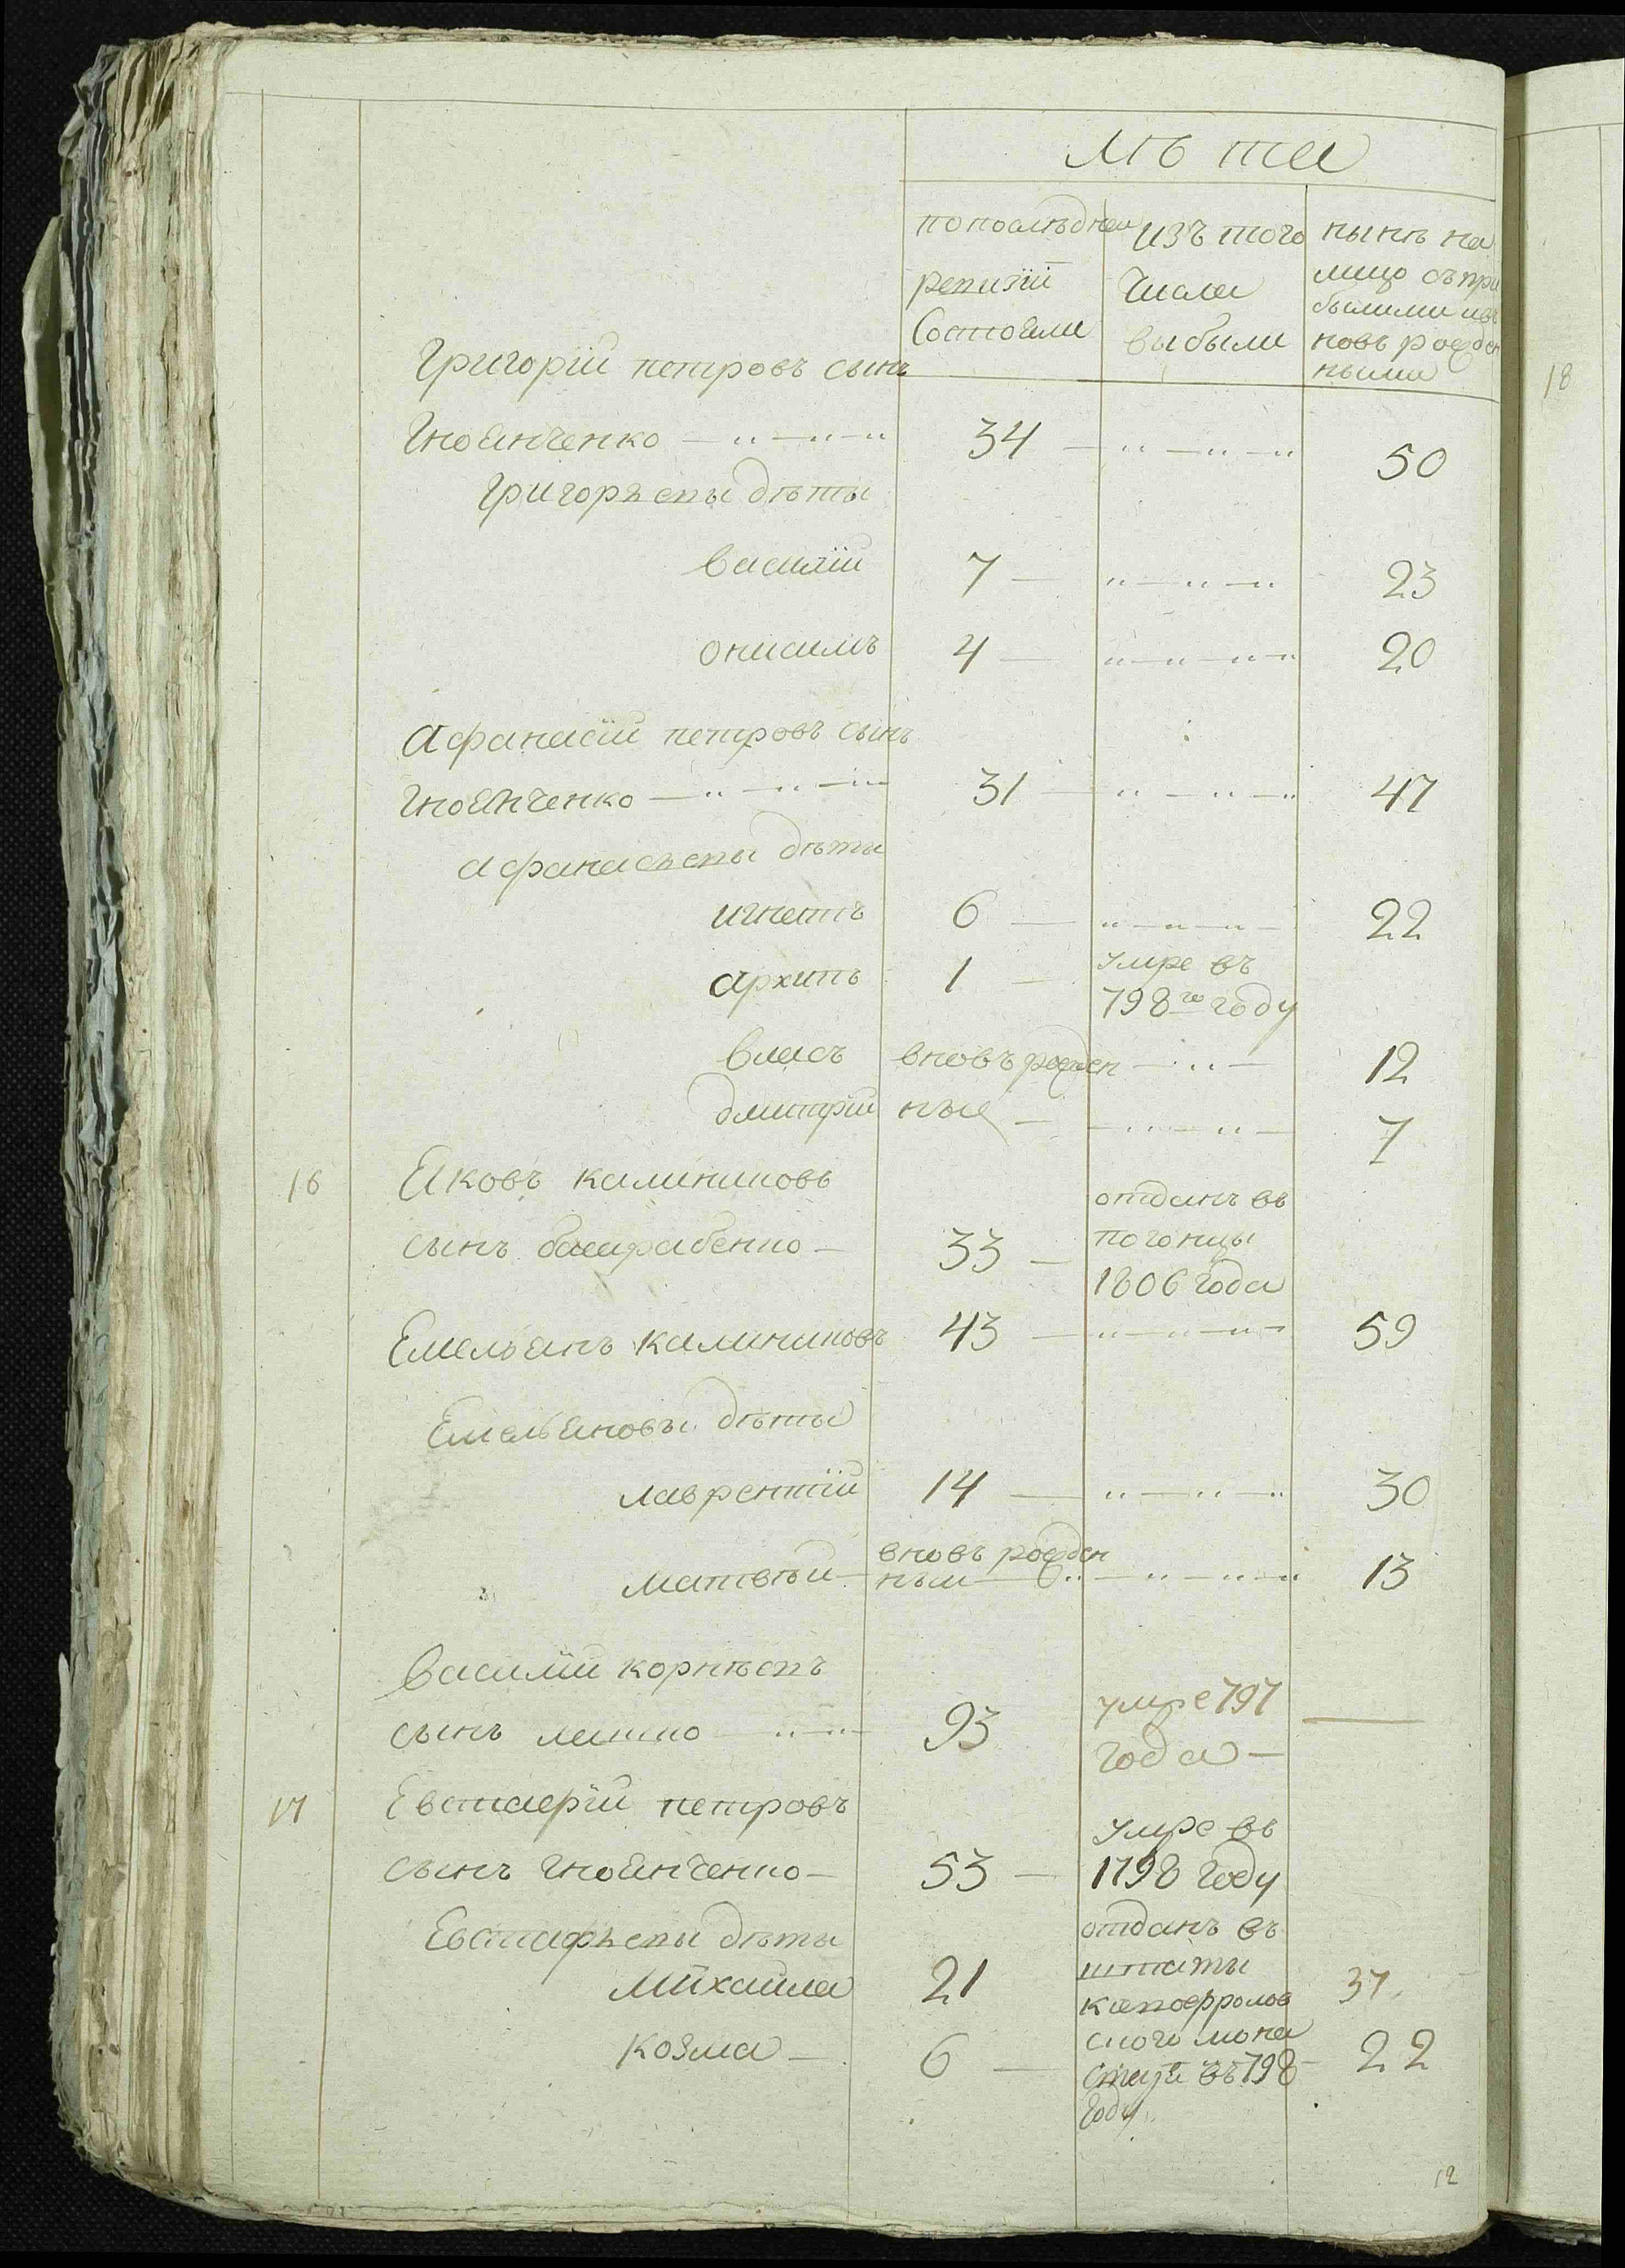 лѣта
по последнеи
ревизіи
состояли
изъ того
числа
выбыли
нынѣ на
лицо съ при
былыми и въ
новь рожден
ными
Григоріи петровъ сынъ
Гноянченко 34 50
Григорьевы дѣти
василіи 7 23
онисимъ 4 20
Афанасіи петровъ сынъ
Гноянченко 31 47
афанасьевы дѣти
игнатъ 6 22
архипъ 1 умре въ
798го году
власъ вновь рожден 12
дмитріи ные 7
16 Яковъ калиниковъ
сынъ 33 отданъ въ
погонцы
1806 года
Емельянъ калиниковъ 43 59
Емельяновы дѣти
лаврентіи 14 30
матвѣи вновь рожден
ныи 13
василіи корнѣевъ
сынъ 93 умре 797
года
17 Евстаѳіи петровъ
сынъ гноянченко 53 умре въ
1798 году
Евстафьевы дѣти
Михаила 21 37
козма 6 22
отданъ въ
штаты
ского мона
стыря въ 798
году
18
12